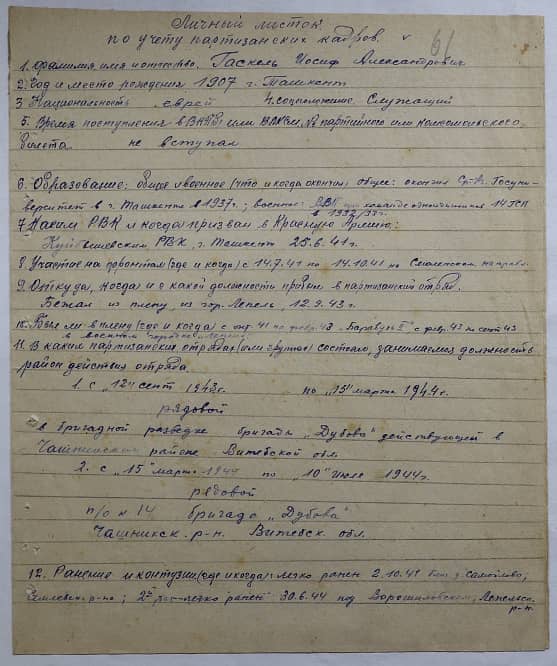 Личный листок
по учету партизанских кадров. 61
1. Фамилия, имя и отчество. Гаскель Иосиф Александрович
2. Год и место рождения 1907 г. Ташкент
3. Национальность еврей 4. соцположение Служащий
5. Время поступления в ВКП(б) или ВЛКСМ, № партийного или комсомольского
билета не вступал
6. Образование: общее и военное (что и когда окончил) общее: окончил Ср-Аз. Госуни-
верситет в г. Ташкенте в 1937г.; военное: при команде одногодичников 14 ГСП
в 1937/38г.
7. Каким РВК и когда призван в Красную Армию:
Куйбышевским РВК, г. Ташкент 25.6.41г.
8. Участие на фронтах (где и когда) с 14.7.41 по 14.10.41 на Смоленском направл.
9. Откуда, когда и с какой должности прибыл в партизанский отряд.
Бежал из плену, из гор. Лепель, 12.9.43г.
10. Был ли в плену (где и когда) с окт. 41 по февр. 43 с февр. 43 по сент. 43
в военном
11. В каких партизанских отрядах (или группах) состоял, занимаемая должность
район действия отряда.
1. с "12" сент 1943г. по "15" марта 1944г.
рядовой
в бригадной разведке бригады "Дубова" действующей в
Чашникском районе Витебской обл.
2. с "15" марта 1944 по "10" июля 1944г.
рядовой
п/о № 14 бригада "Дубова"
Чашникск. р-н. Витебск. обл.
12. Ранение и контузии (где и когда) легко ранен 2.10.41 близ д. Самойлово,
р-на; 2й легко ранен 30.6.44 под Ворошиловском, Лепельск.
р-н.